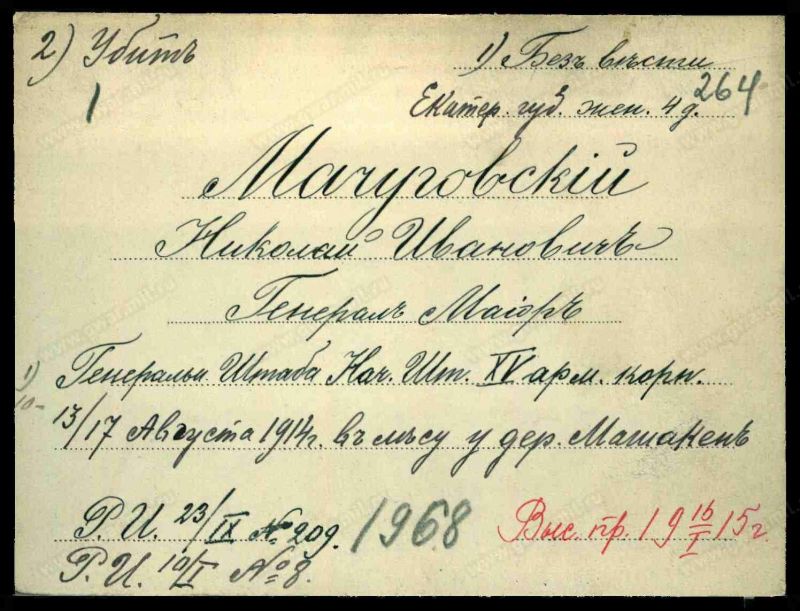 2) Убитъ
1
1) Безъ вѣсти
Екатер. губ. жен. 4 д.
264
Мачуговскій
Николай Ивановичъ
Генералъ Маіоръ
1) Генеральн Штаба Нач. Шт. XV арм. корп.
10-
13/17 Августа 1914г. въ лѣсу у дер. Машакенъ
Р. И. 23/IX № 209.
1968
Выс. пр. 19 16/I 15г
Р. И. 10/I № 8.